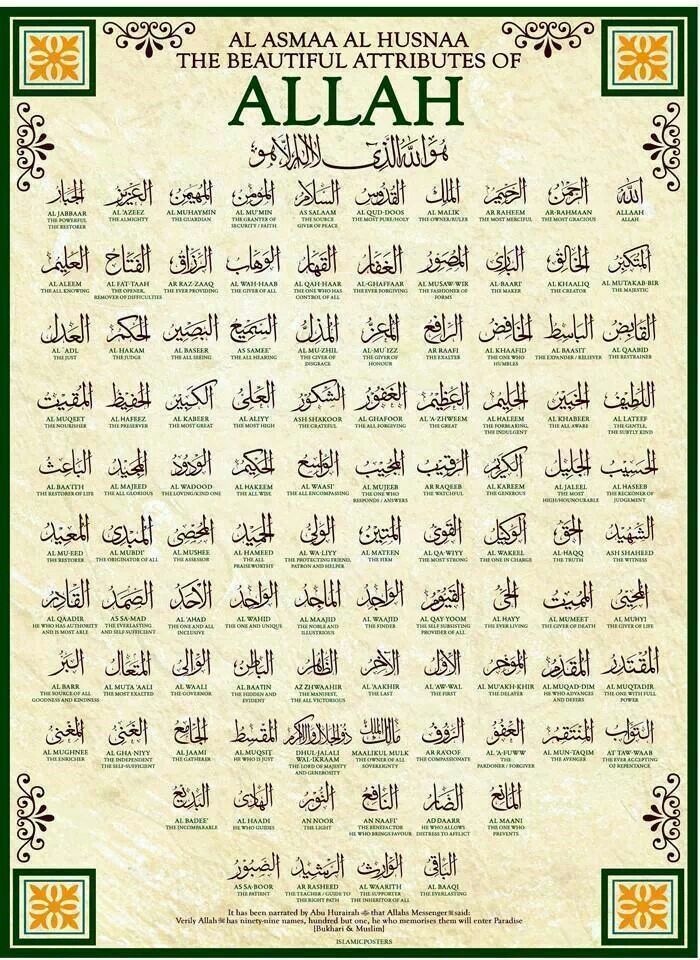 AL ASMAA AL HUSNAA
THE BEAUTIFUL ATTRIBUTES OF
ALLAH
هو الله الذي لا إله إلا هو
الله
ALLAAH
ALLAH
الرحمن
AR-RAHMAAN
THE MOST GRACIOUS
الرحيم
AR RAHEEM
THE MOST MERCIFUL
الملك
AL MALIK
THE OWNER/RULER
القدوس
AL QUD-DOOS
THE MOST PURE/HOLY
السلام
AS SALAAM
THE SOURCE
GIVER OF PEACE
المؤمن
AL MU'MIN
THE GRANTER OF
SECURITY / FAITH
المهيمن
AL MUHAYMIN
THE GUARDIAN
العزيز
AL 'AZEEZ
THE ALMIGHTY
الجبار
AL JABBAAR
THE POWERFUL
THE RESTORER
المتكبر
AL MUTAKAB-BIR
THE MAJESTIC
الخالق
AL KHAALIQ
THE CREATOR
البارئ
AL-BAARI'
THE MAKER
المصور
AL MUSAW-WIR
THE FASHIONER OF
FORMS
الغفار
AL-GHAFFAAR
THE EVER FORGIVING
القهار
AL QAH-HAAR
THE ONE WHO HAS
CONTROL OF ALL
الوهاب
AL WAH-HAAB
THE GIVER OF ALL
الرزاق
AR RAZ-ZAAQ
THE EVER PROVIDING
الفتاح
AL FAT-TAAH
THE OPENER,
REMOVER OF DIFFICULTIES
العليم
AL ALEEM
THE ALL KNOWING
القابض
AL QAABID
THE RESTRAINER
الباسط
AL BAASIT
THE EXPANDER / RELIEVER
الخافض
AL KHAAFID
THE ONE WHO
HUMBLES
الرافع
AR RAAFI
THE EXALTER
المعز
AL-MU'IZZ
THE GIVER OF
HONOUR
المذل
AL MU-ZHIL
THE GIVER OF
DISGRACE
السميع
AS SAMEE'
THE ALL HEARING
البصير
AL BASEER
THE ALL SEEING
الحكم
AL HAKAM
THE JUDGE
العدل
AL 'ADL
THE JUST
اللطيف
AL LATEEF
THE GENTLE,
THE SUBTLY KIND
الخبير
AL KHABEER
THE ALL AWARE
الحليم
AL HALEEM
THE FORBEARING,
THE INDULGENT
العظيم
AL 'A-ZHWEEM
THE GREAT
الغفور
AL GHAFOOR
THE ALL FORGIVING
الشكور
ASH SHAKOOR
THE GRATEFUL
العلي
AL ALIYY
THE MOST HIGH
الكبير
AL KABEER
THE MOST GREAT
الحفيظ
AL HAFEEZ
THE PRESERVER
المقيت
AL MUQEET
THE NOURISHER
الحسيب
AL HASEEB
THE RECKONER OF
JUDGEMENT
الجليل
AL JALEEL
THE MOST
HIGH/HOUNOURABLE
الكريم
AL KAREEM
THE GENEROUS
الرقيب
AR RAQEEB
THE WATCHFUL
المجيب
AL MUJEEB
THE ONE WHO
RESPONDS / ANSWERS
الواسع
AL WAASI'
THE ALL ENCOMPASSING
الحكيم
AL HAKEEM
THE ALL WISE
الودود
AL WADOOD
THE LOVING/KIND ONE
المجيد
AL MAJEED
THE ALL GLORIOUS
الباعث
AL BAA'ITH
THE RESTORER OF LIFE
الشهيد
ASH SHAHEED
THE WITNESS
الحق
AL-HAQQ
THE TRUTH
الوكيل
AL WAKEEL
THE ONE IN CHARGE
القوي
AL QA-WIYY
THE MOST STRONG
المتين
AL MATEEN
THE FIRM
الولي
AL WA-LIYY
THE PROTECTING FRIEND,
PATRON AND HELPER
الحميد
AL HAMEED
THE ALL
PRAISEWORTHY
المحصي
AL MUSHEE
THE ASSESSOR
المبدئ
AL MUBDI'
THE ORIGINATOR OF ALL
المعيد
AL MU-EED
THE RESTORER
المحيي
AL MUHYI
THE GIVER OF LIFE
المميت
AL MUMEET
THE GIVER OF DEATH
الحي
AL HAYY
THE EVER LIVING
القيوم
AL QAY YOOM
THE SELF SUBSISTING
PROVIDER OF ALL
الواجد
AL WAAJID
THE FINDER
الماجد
AL MAAJID
THE NOBLE AND
ILLUSTRIOUS
الواحد
AL WAHID
THE ONE AND UNIQUE
الأحد
AL 'AHAD
THE ONE AND ALL
INCLUSIVE
الصمد
AS SA-MAD
THE EVERLASTING
AND SELF SUFFICIENT
القادر
AL QAADIR
HE WHO HAS AUTHORITY
AND IS MOST ABLE
المقتدر
AL MUQTADIR
THE ONE WITH FULL
POWER
المقدم
AL MUQAD-DIM
HE WHO ADVANCES
AND DEFERS
المؤخر
AL MU'AKH-KHIR
THE DELAYER
الأول
AL 'AW-WAL
THE FIRST
الآخر
AL 'AAKHIR
THE LAST
الظاهر
AZ ZHWAAHIR
THE MANIFEST,
THE ALL VICTORIOUS
الباطن
AL BAATIN
THE HIDDEN AND
EVIDENT
الوالي
AL WAALI
THE GOVERNOR
المتعال
AL MUTA 'AALI
THE MOST EXALTED
البر
AL BARR
THE SOURCE OF ALL
GOODNESS AND KINDNESS
التواب
AT TAW-WAAB
THE EVER ACCEPTING
OF REPENTANCE
المنتقم
AL MUN-TAQIM
THE AVENGER
العفو
AL 'A-FUWW
THE
PARDONER / FORGIVER
الرؤوف
AR RA'OOF
THE COMPASSIONATE
مالك الملك
MAALIKUL MULK
THE OWNER OF ALL
SOVEREIGNTY
ذو الجلال والإكرام
DHUL-JALALI
WAL-IKRAAM
THE LORD OF MAJESTY
AND GENEROSITY
المقسط
AL MUQSIT
HE WHO IS JUST
الجامع
AL JAAMI
THE GATHERER
الغني
AL GHA-NIYY
THE INDEPENDENT
THE SELF-SUFFICIENT
المغني
AL MUGHNEE
THE ENRICHER
المانع
AL MAANI
THE ONE WHO
PREVENTS
الضار
AD DAARR
HE WHO ALLOWS
DISTRESS TO AFFLICT
النافع
AN NAAFI'
THE BENEFACTOR
HE WHO BRINGS FAVOUR
النور
AN NOOR
THE LIGHT
الهادي
AL HAADI
HE WHO GUIDES
البديع
AL BADEE'
THE INCOMPARABLE
الباقي
AL BAAQI
THE EVERLASTING
الوارث
AL WAARITH
THE SUPPORTER
THE INHERITOR OF ALL
الرشيد
AR RASHEED
THE TEACHER / GUIDE TO
THE RIGHT PATH
الصبور
AS SA-BOOR
THE PATIENT
It has been narrated by Abu Hurairah that Allahs Messenger ﷺ said:
Verily Allah has ninety-nine names, hundred but one, he who memorises them will enter Paradise
[Bukhari & Muslim]
ISLAMICPOSTERS